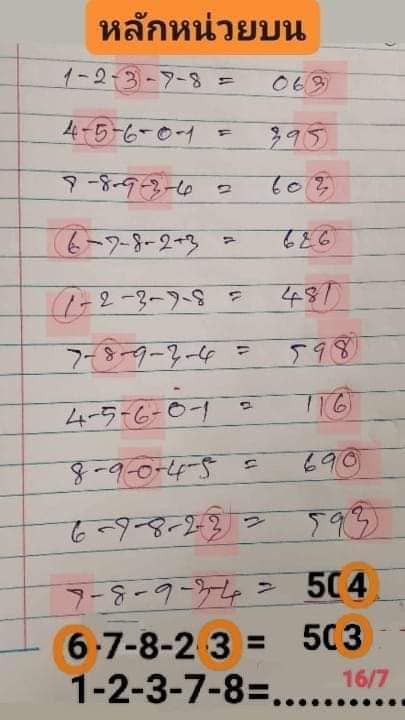 หลักหน่วยบน
1-2-3-7-8 = 063
4-5-6-0-1 = 395
7-8-9-3-4 = 603
6-7-8-2-3 = 626
1-2-3-7-8 = 481
7-8-9-3-4 = 598
4-5-6-0-1 = 116
8-9-0-4-5 = 690
6-7-8-2-3 = 593
7-8-9-3-4 = 504
6-7-8-2-3 = 503
16/7
1-2-3-7-8=............